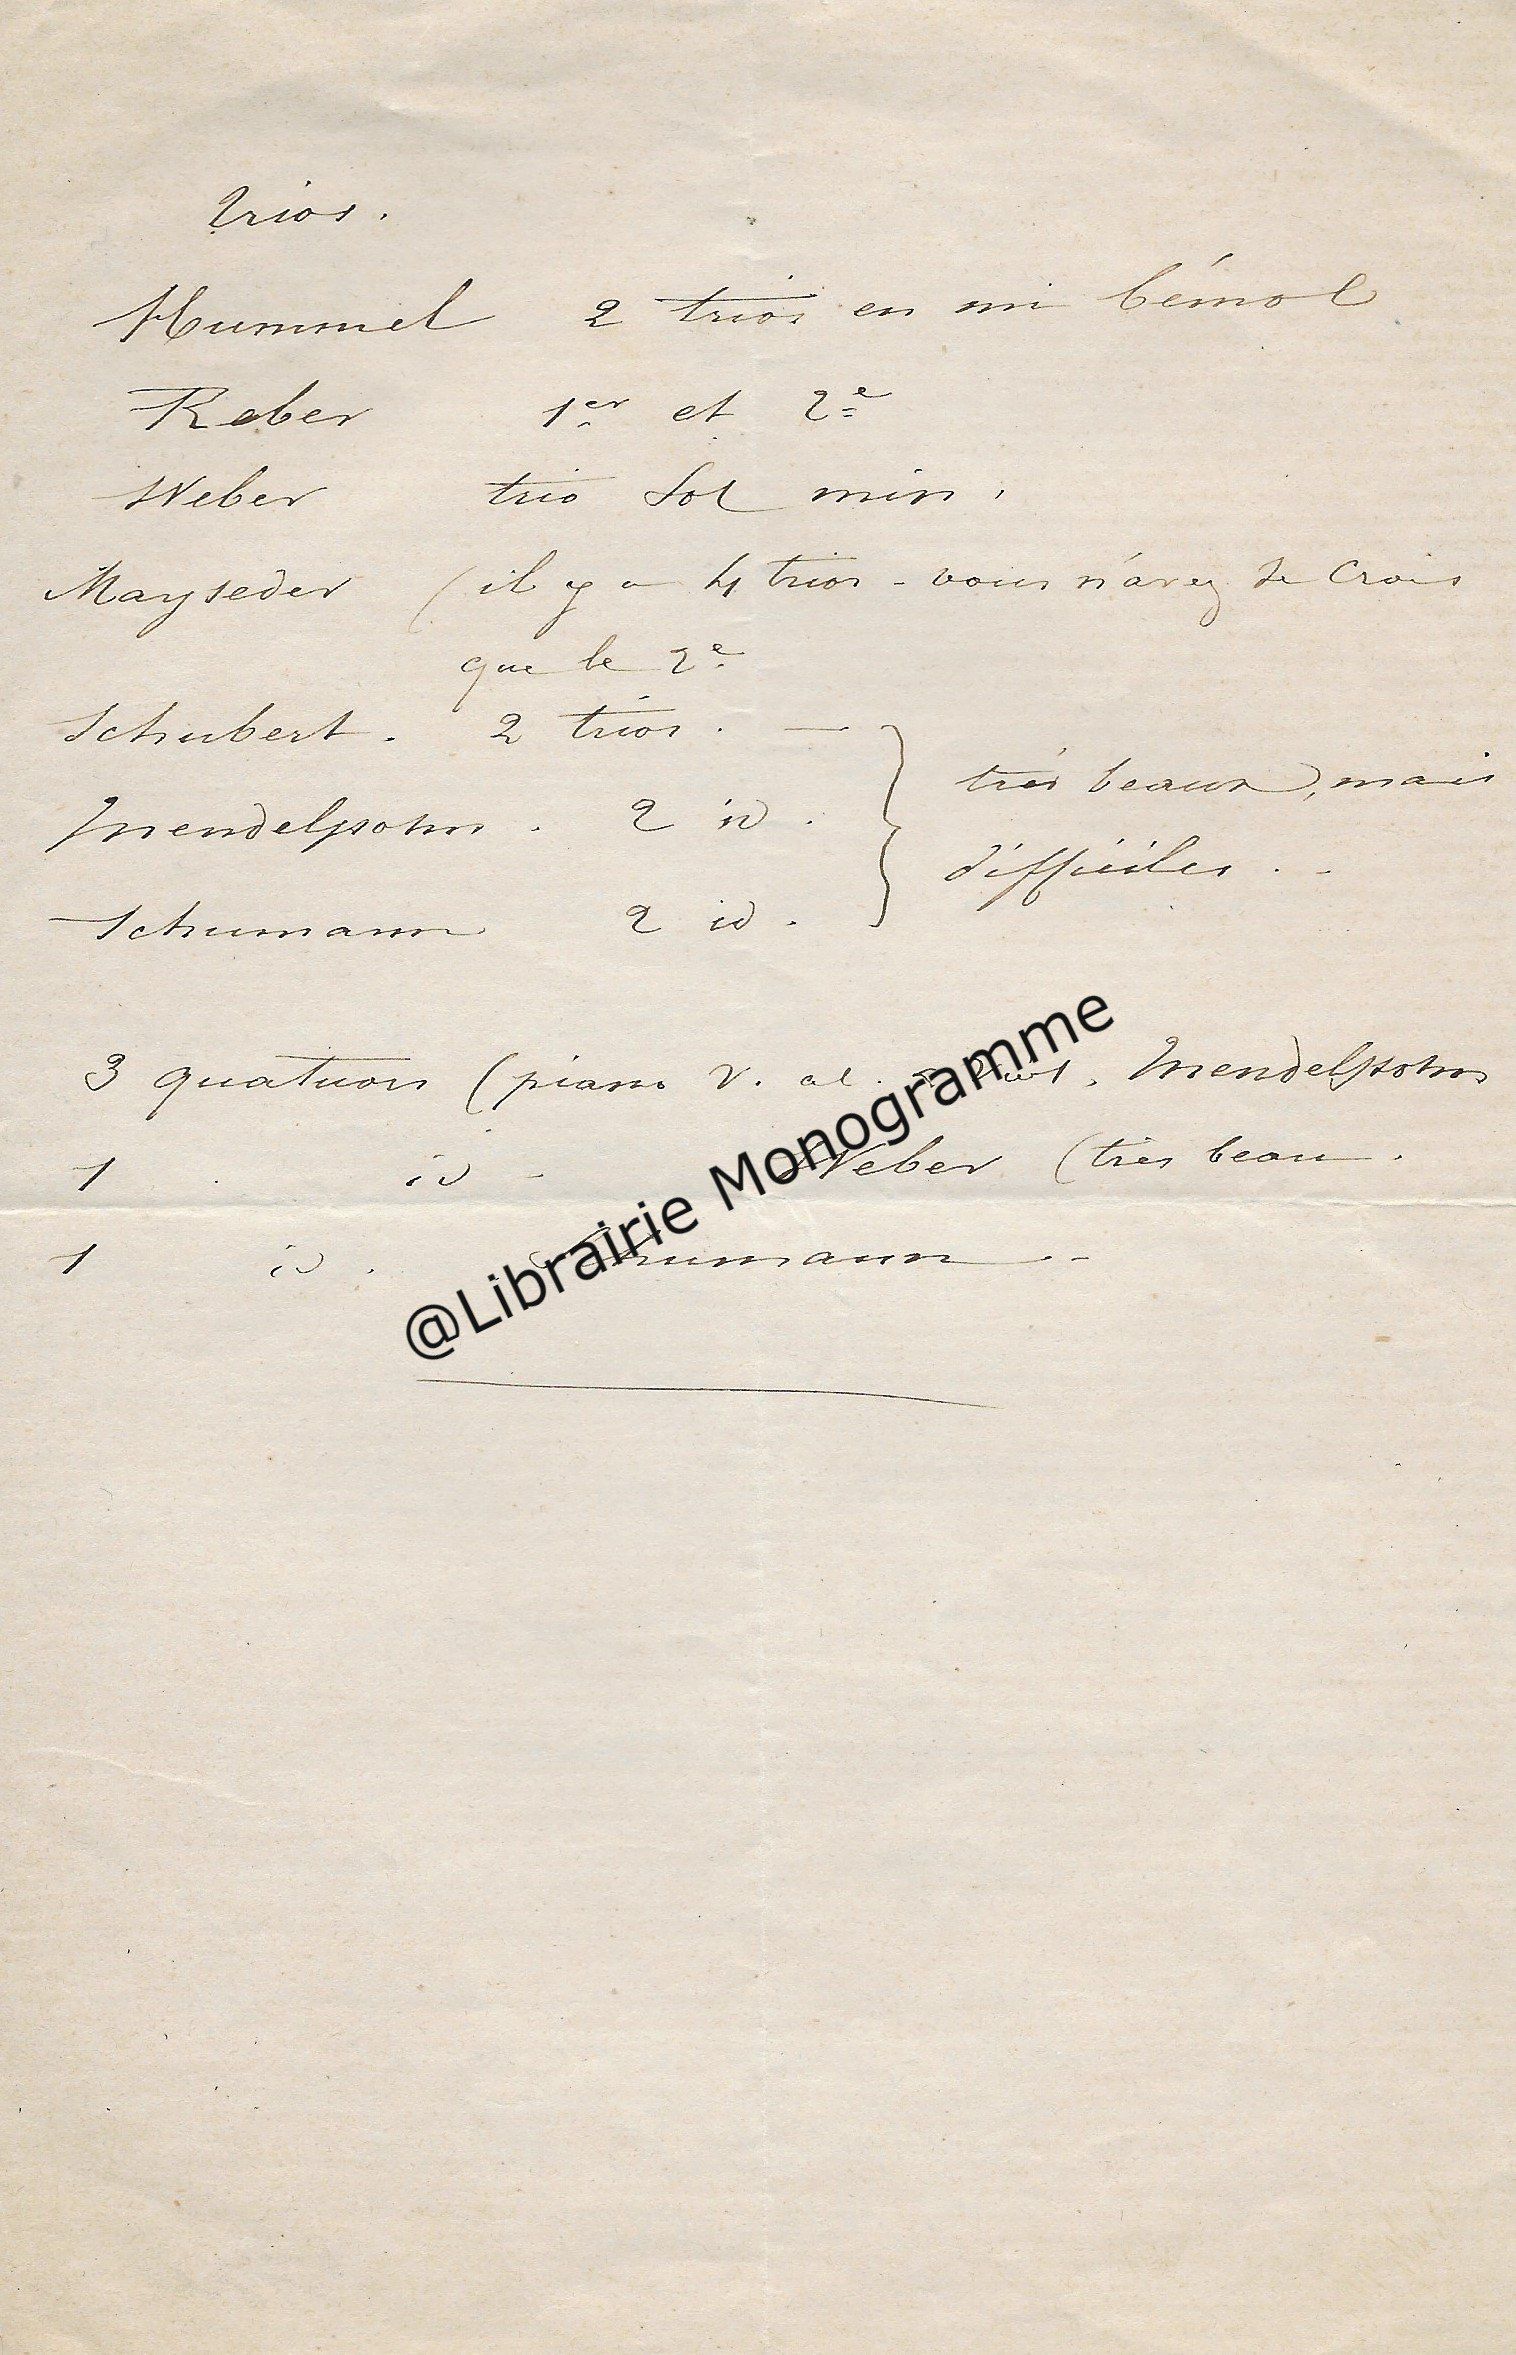 Trios.
Hummel 2 trios en mi bémol
Reber 1er et 2e
Weber trio Sol min.
Mayseder (il y a 4 trios - vous n'avez je crois
que le 2e
Schubert. 2 trios. —
Mendelpsohn. 2 id.
très beaux, mais
difficiles. -
Schumann 2 id.
3 quatuors (piano v. al. Mendelpsohn
1 id - Weber (très beau.
1 id. Schumann -
@Librairie Monogramme